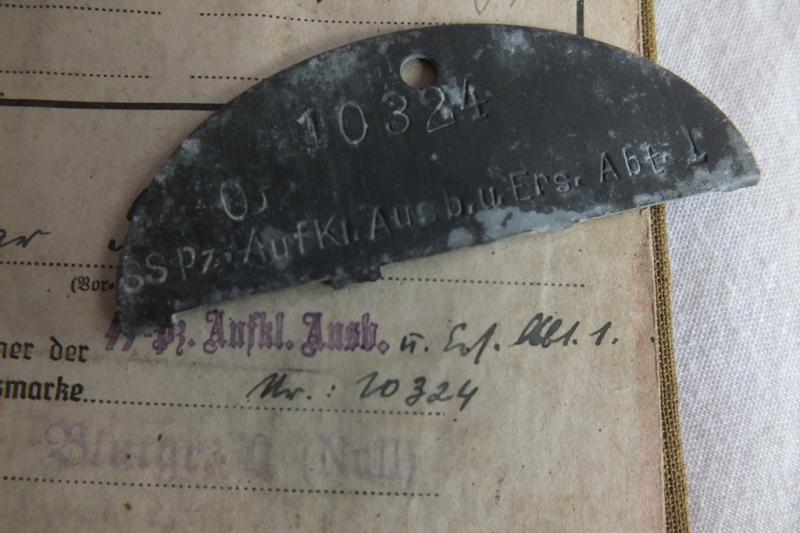 10324
O
SS Pz. AufKl. Ausb. u. Ers. Abt. 1
(Vor-
ner der ᛋᛋ-Pz. Aufkl. Ausb. u. Ers. Abt. 1.
smarke Nr.: 10324
Blutgr. O (Null)